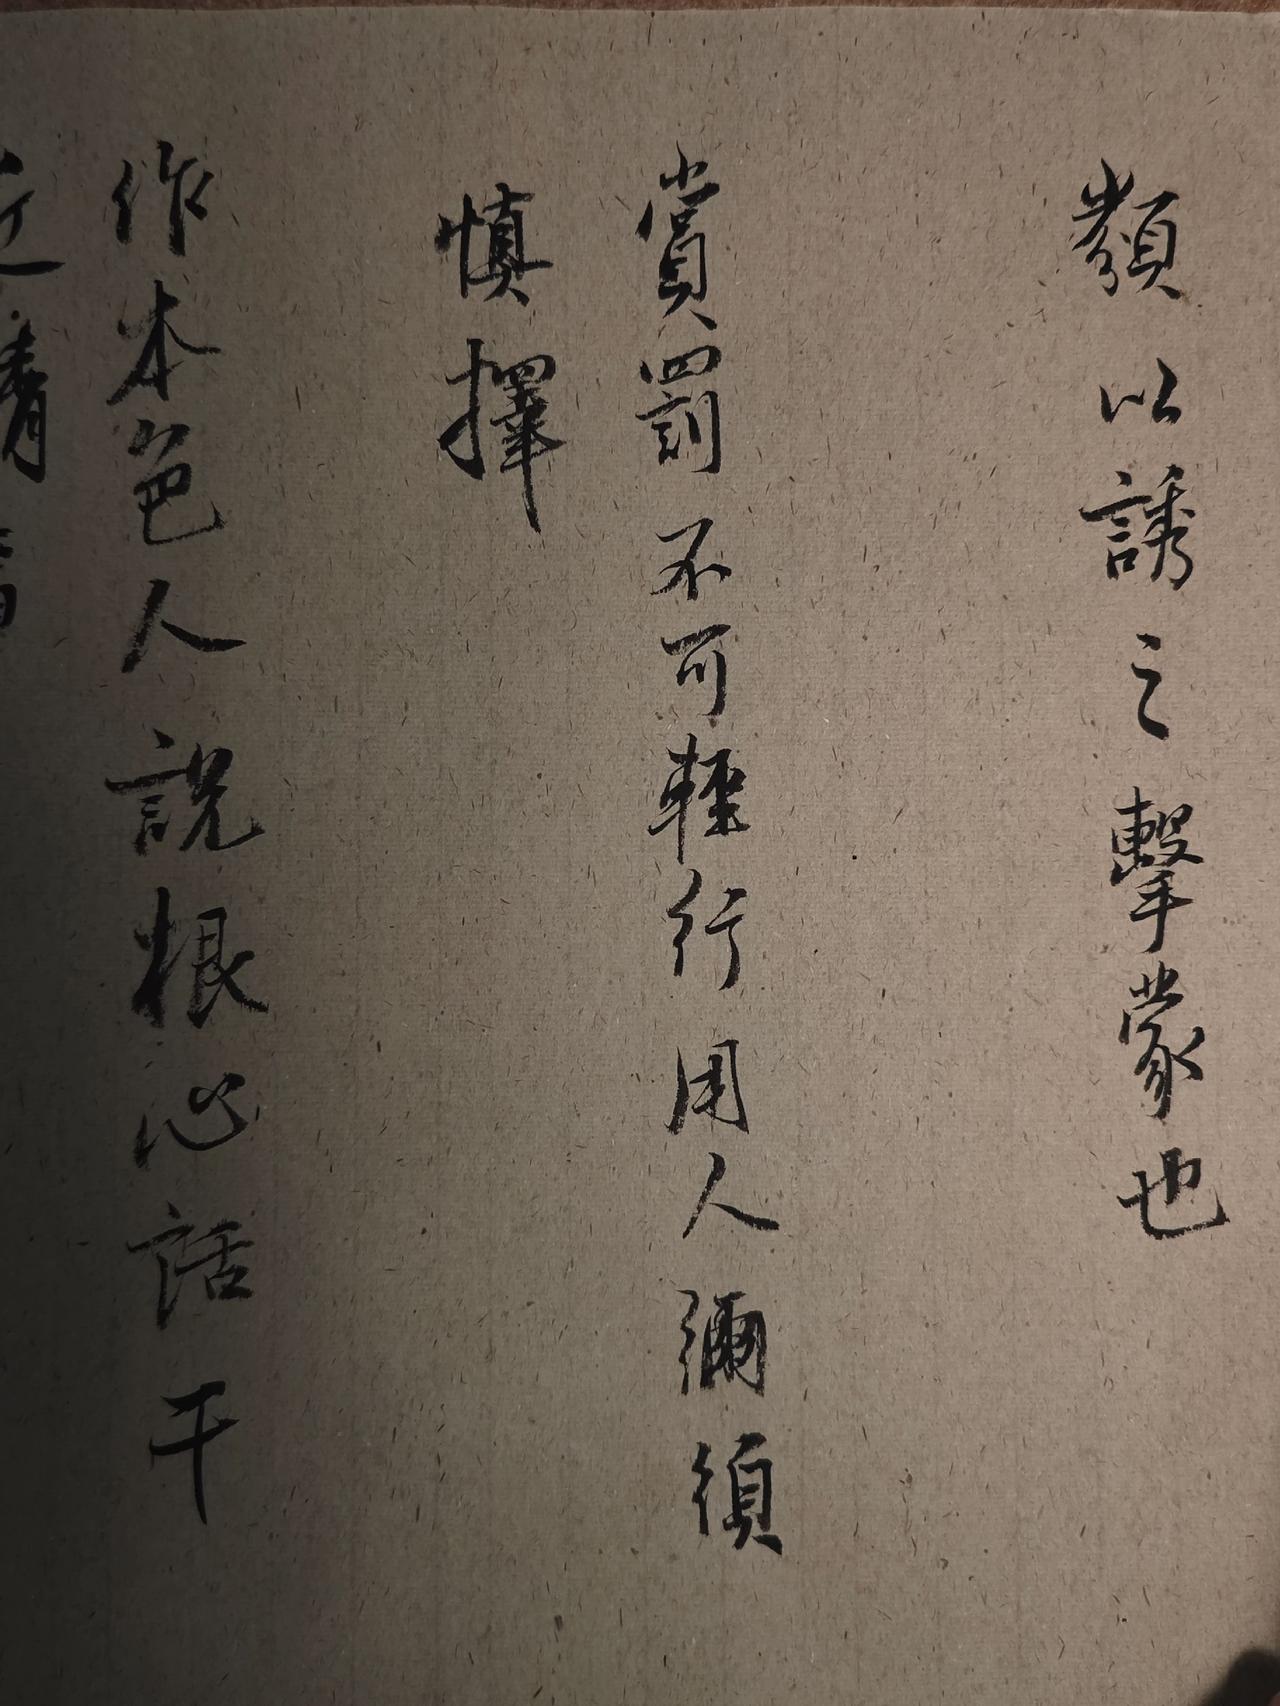 類以誘之擊蒙也
賞罰不可輕行用人彌須
慎擇
作本色人說根心話干
近情